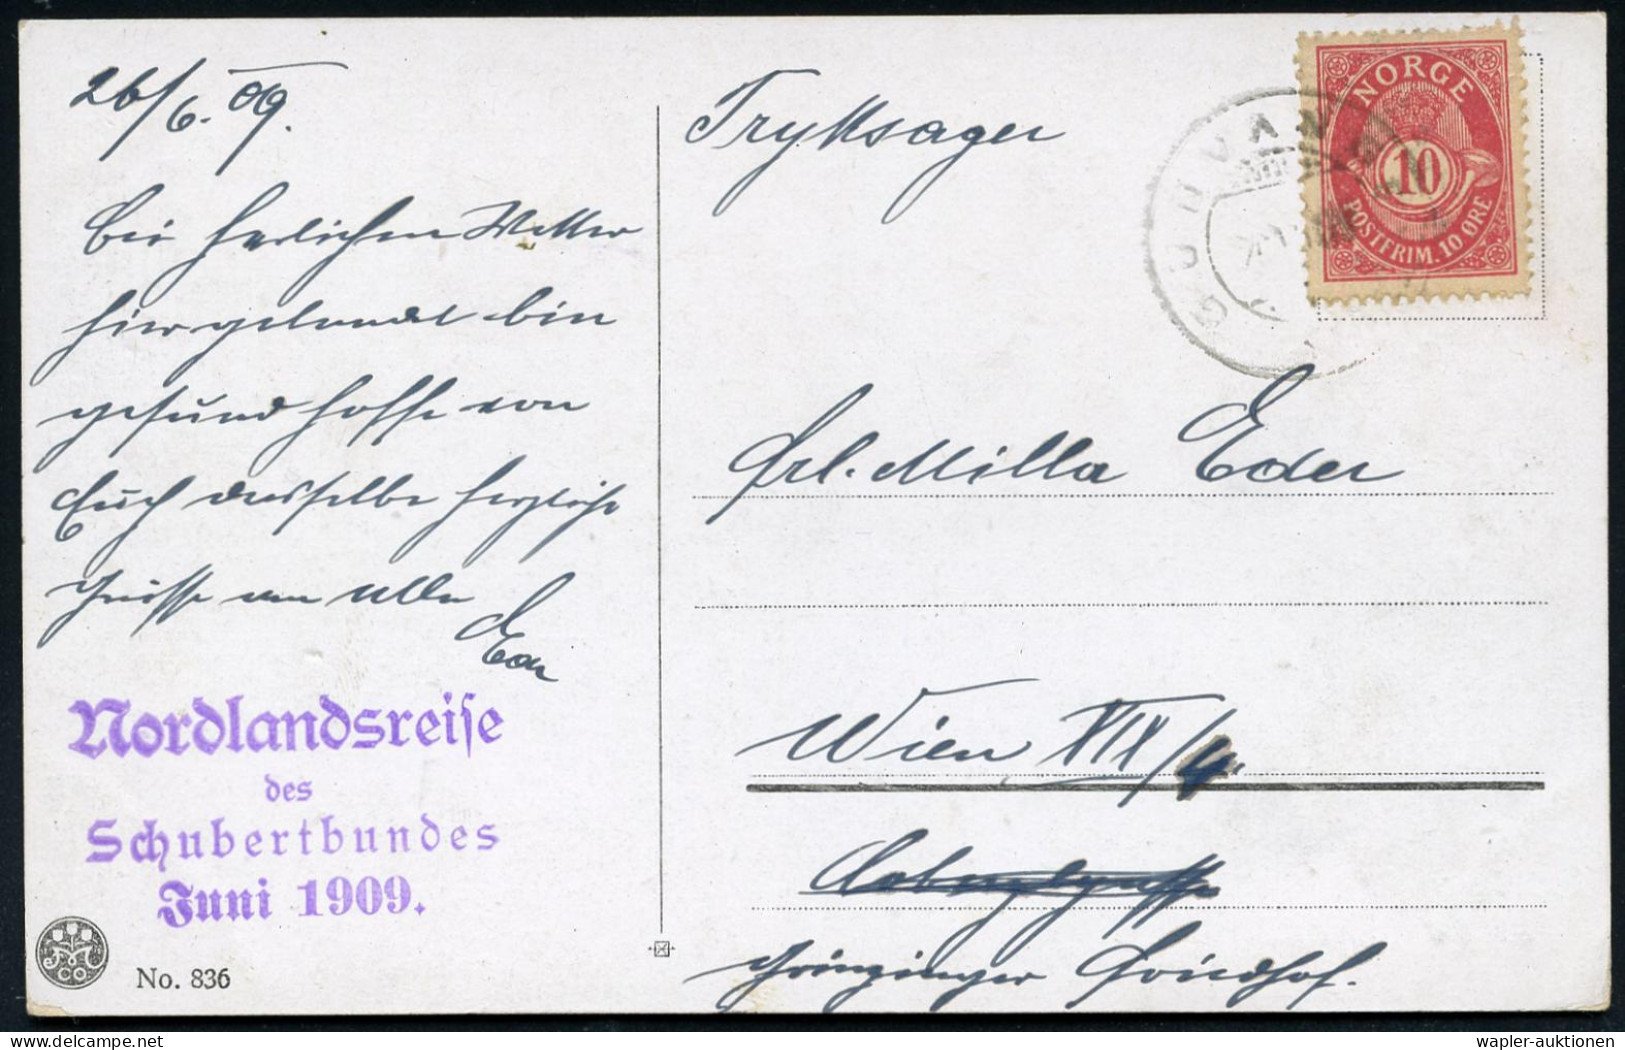 26/6. 09.
Bei herlichem Wetter
hier gelandet bin
gesund hoffe von
Euch dasselbe herzliche
Grüsse an alle
Eder
Nordlandsreise
des
Schubertbundes
Juni 1909.
CO
No. 836
Tryksager
GUDVANGEN
NORGE
10
POSTFRIM. 10 ØRE
Frl. Milla Eder
Wien XIX/4.
Grinzinger Friedhof.
wapler-auktionen